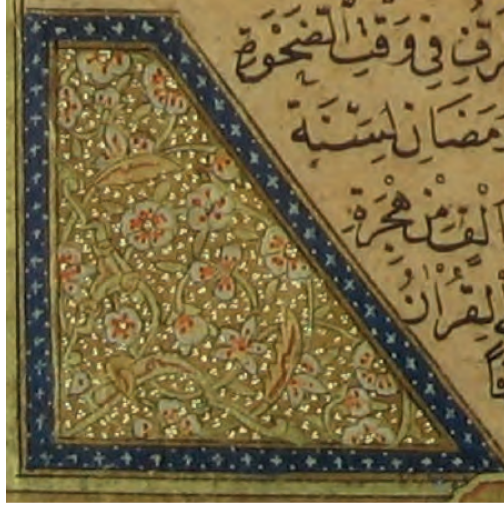 فِي وَقْتِ الضَّحْوَةِ
مَضَانَ لِسَنَةِ
اَلْفٍ مِنْ هِجْرَةِ
الْقُرْاٰنُ